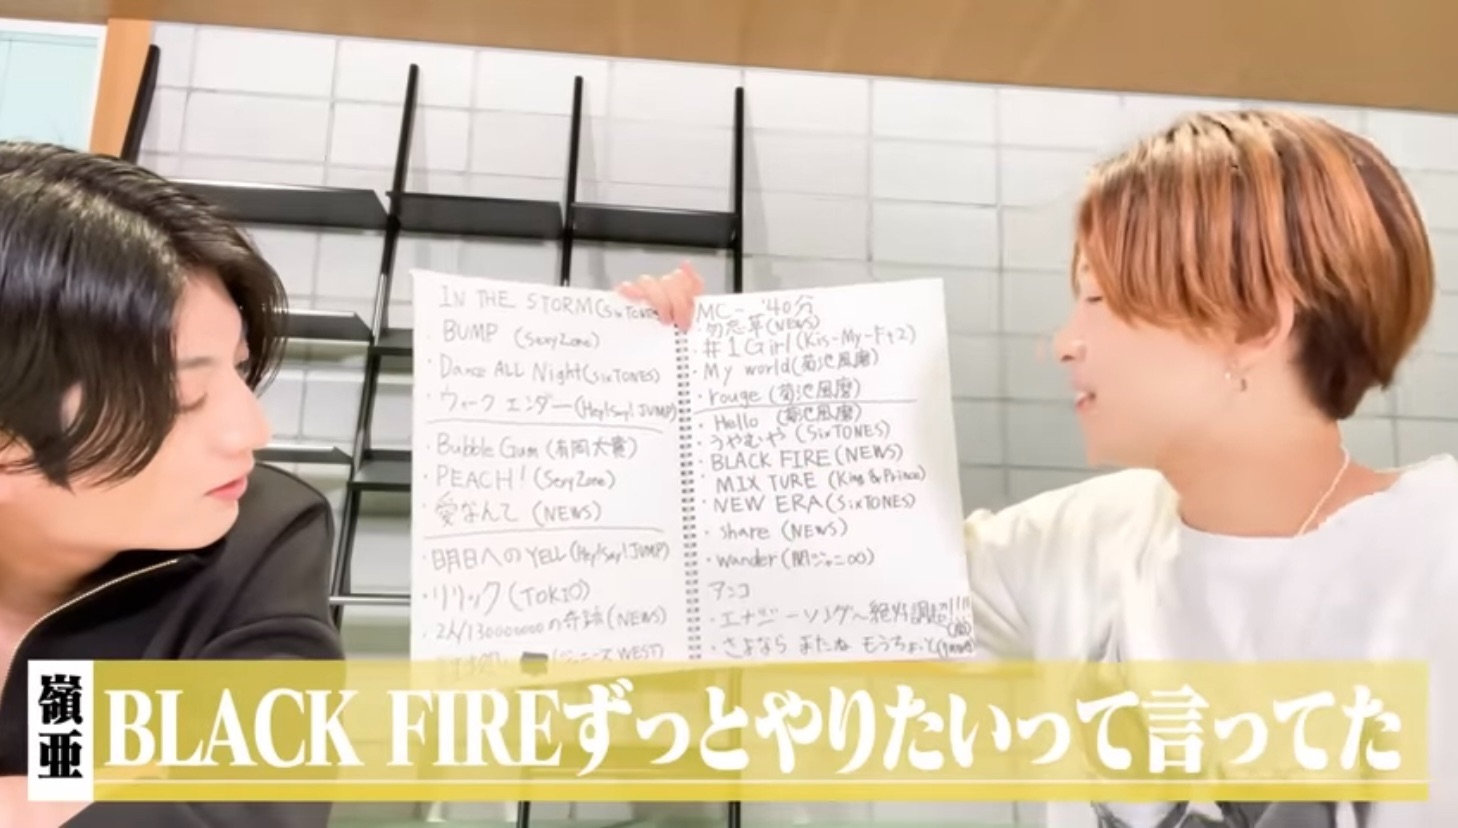 IN THE STORM(SixTONES
・BUMP (SexyZone)
・Dance ALL Night(SixTONES)
・ウィークエンダー(Hey!Say!JUMP)
・Bubble Gum (有岡大貴)
・PEACH! (SexyZone)
・愛なんて (NEWS)
・明日へのYELL(Hey!Say!JUMP)
・リリック(TOKIO)
・2人/130000000の奇跡(NEWS)
(ジャニーズWEST)
MC- '40分
・勿忘草(NEWS)
・#1Girl(Kis-My-Ft2)
・My world(菊池風磨)
・rouge (菊池風磨)
・Hello (菊池風磨)
・うやむや (SixTONES)
・BLACK FIRE(NEWS)
・MIXTURE (King&Prince)
・NEW ERA(SixTONES)
・share (NEWS)
・wander(関ジャニ∞)
アンコ
・エナジーソング〜絶好調超!!!!
・さよなら またね もうちょっと
嶺亜
BLACK FIREずっとやりたいって言ってた